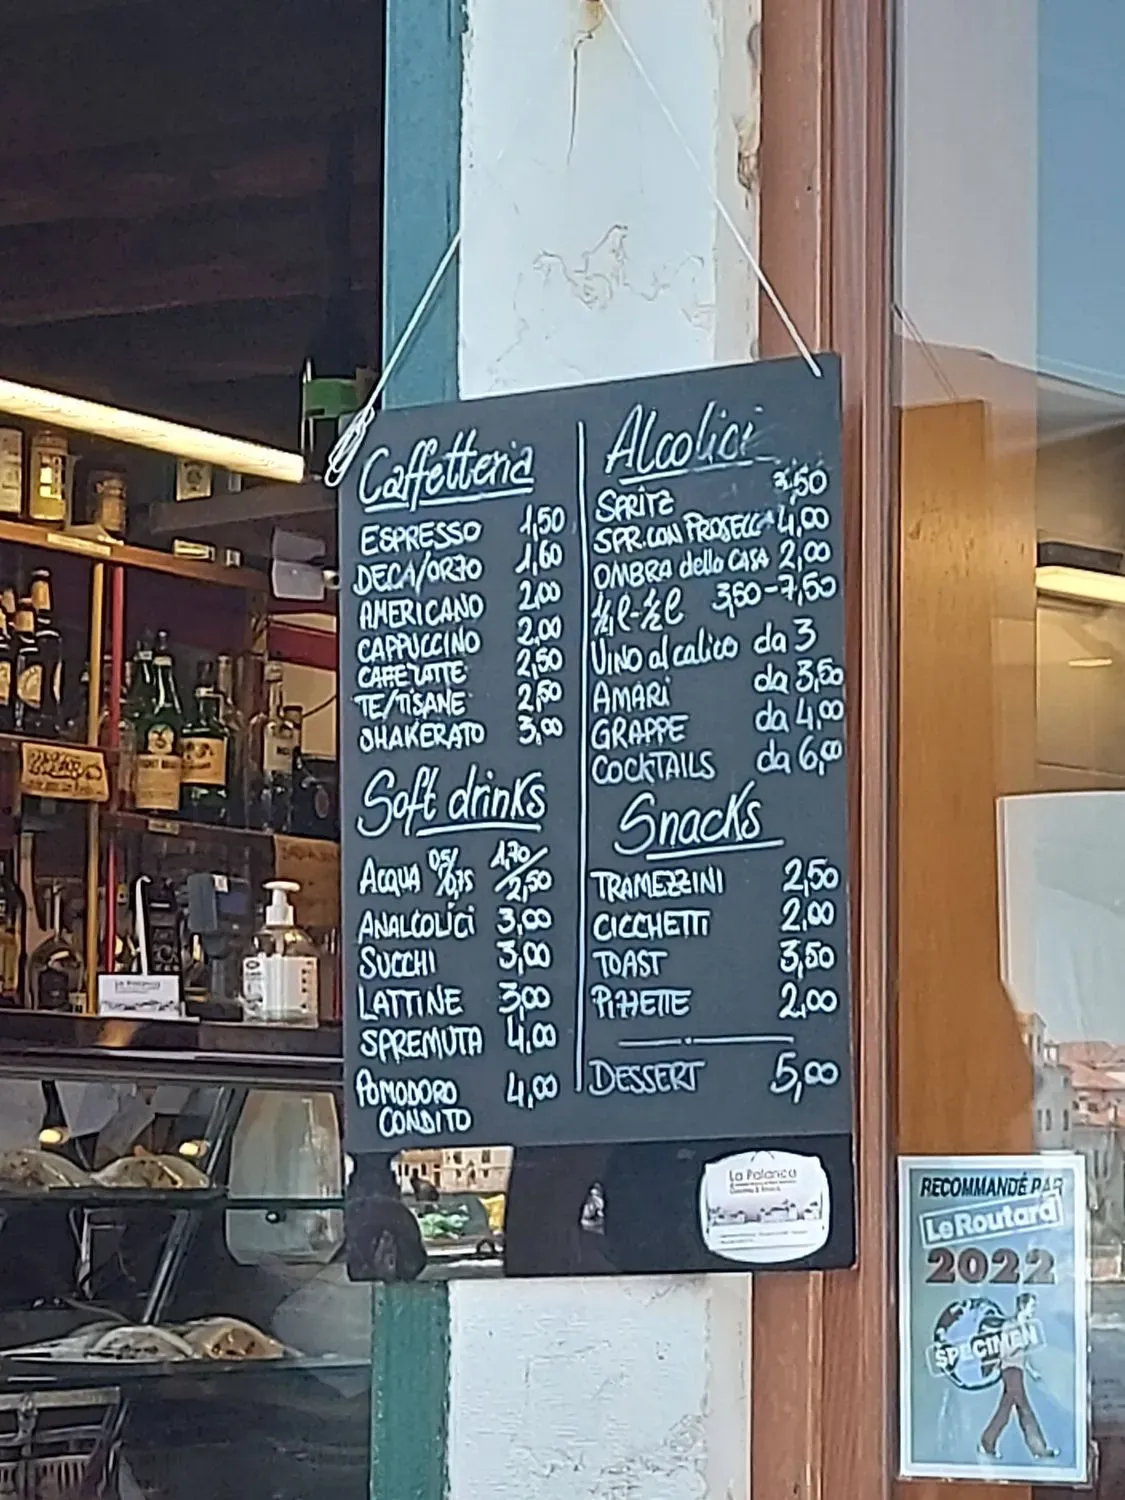 Caffetteria
ESPRESSO 1,50
DECA/ORZO 1,60
AMERICANO 2,00
CAPPUCCINO 2,00
CAFFELATTE 2,50
TE/TISANE 2,50
SHAKERATO 3,00
Soft drinks
ACQUA 0,5/0,75 1,70/2,50
ANALCOLICI 3,00
SUCCHI 3,00
LATTINE 3,00
SPREMUTA 4,00
POMODORO 4,00
CONDITO
Alcolici
SPRITZ 3,50
SPR.CON PROSECCO 4,00
OMBRA della CASA 2,00
¼l-½l 3,50-7,50
VINO al calice da 3
AMARI da 3,50
GRAPPE da 4,00
COCKTAILS da 6,00
Snacks
TRAMEZZINI 2,50
CICCHETTI 2,00
TOAST 3,50
PIZZETTE 2,00
DESSERT 5,00
La Palanca
La Palanca
RECOMMANDÉ PAR
Le Routard
2022
SPECIMEN